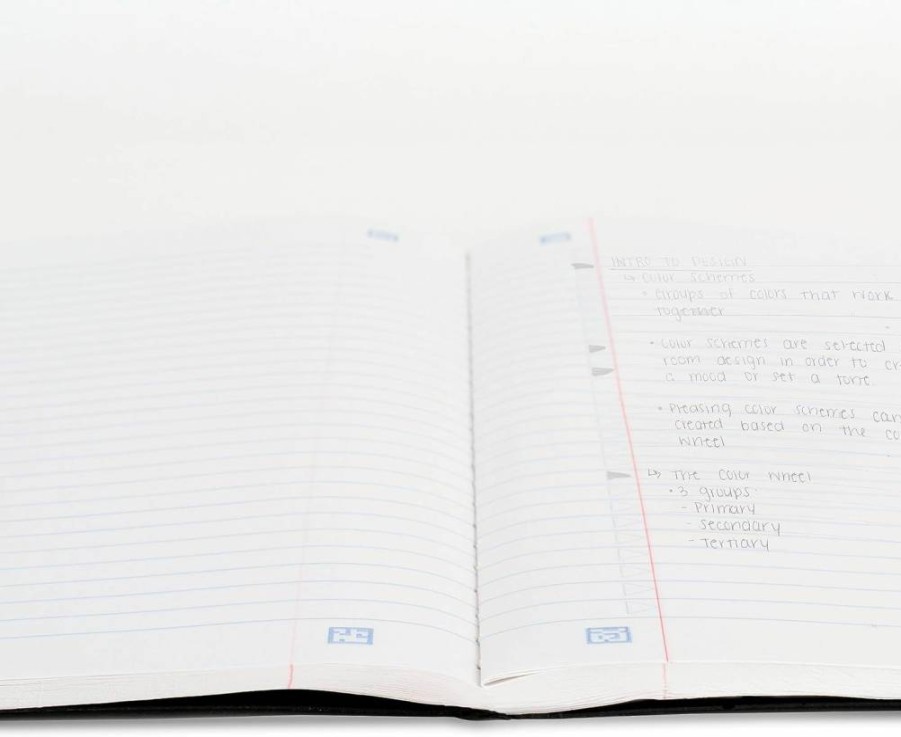 INTRO TO DESIGN
↳ Color schemes
• Groups of colors that work
together
• Color schemes are selected
room design in order to cr
a mood or set a tone.
• Pleasing color schemes can
created based on the co
wheel
↳ The color wheel
• 3 groups
- Primary
- Secondary
- Tertiary